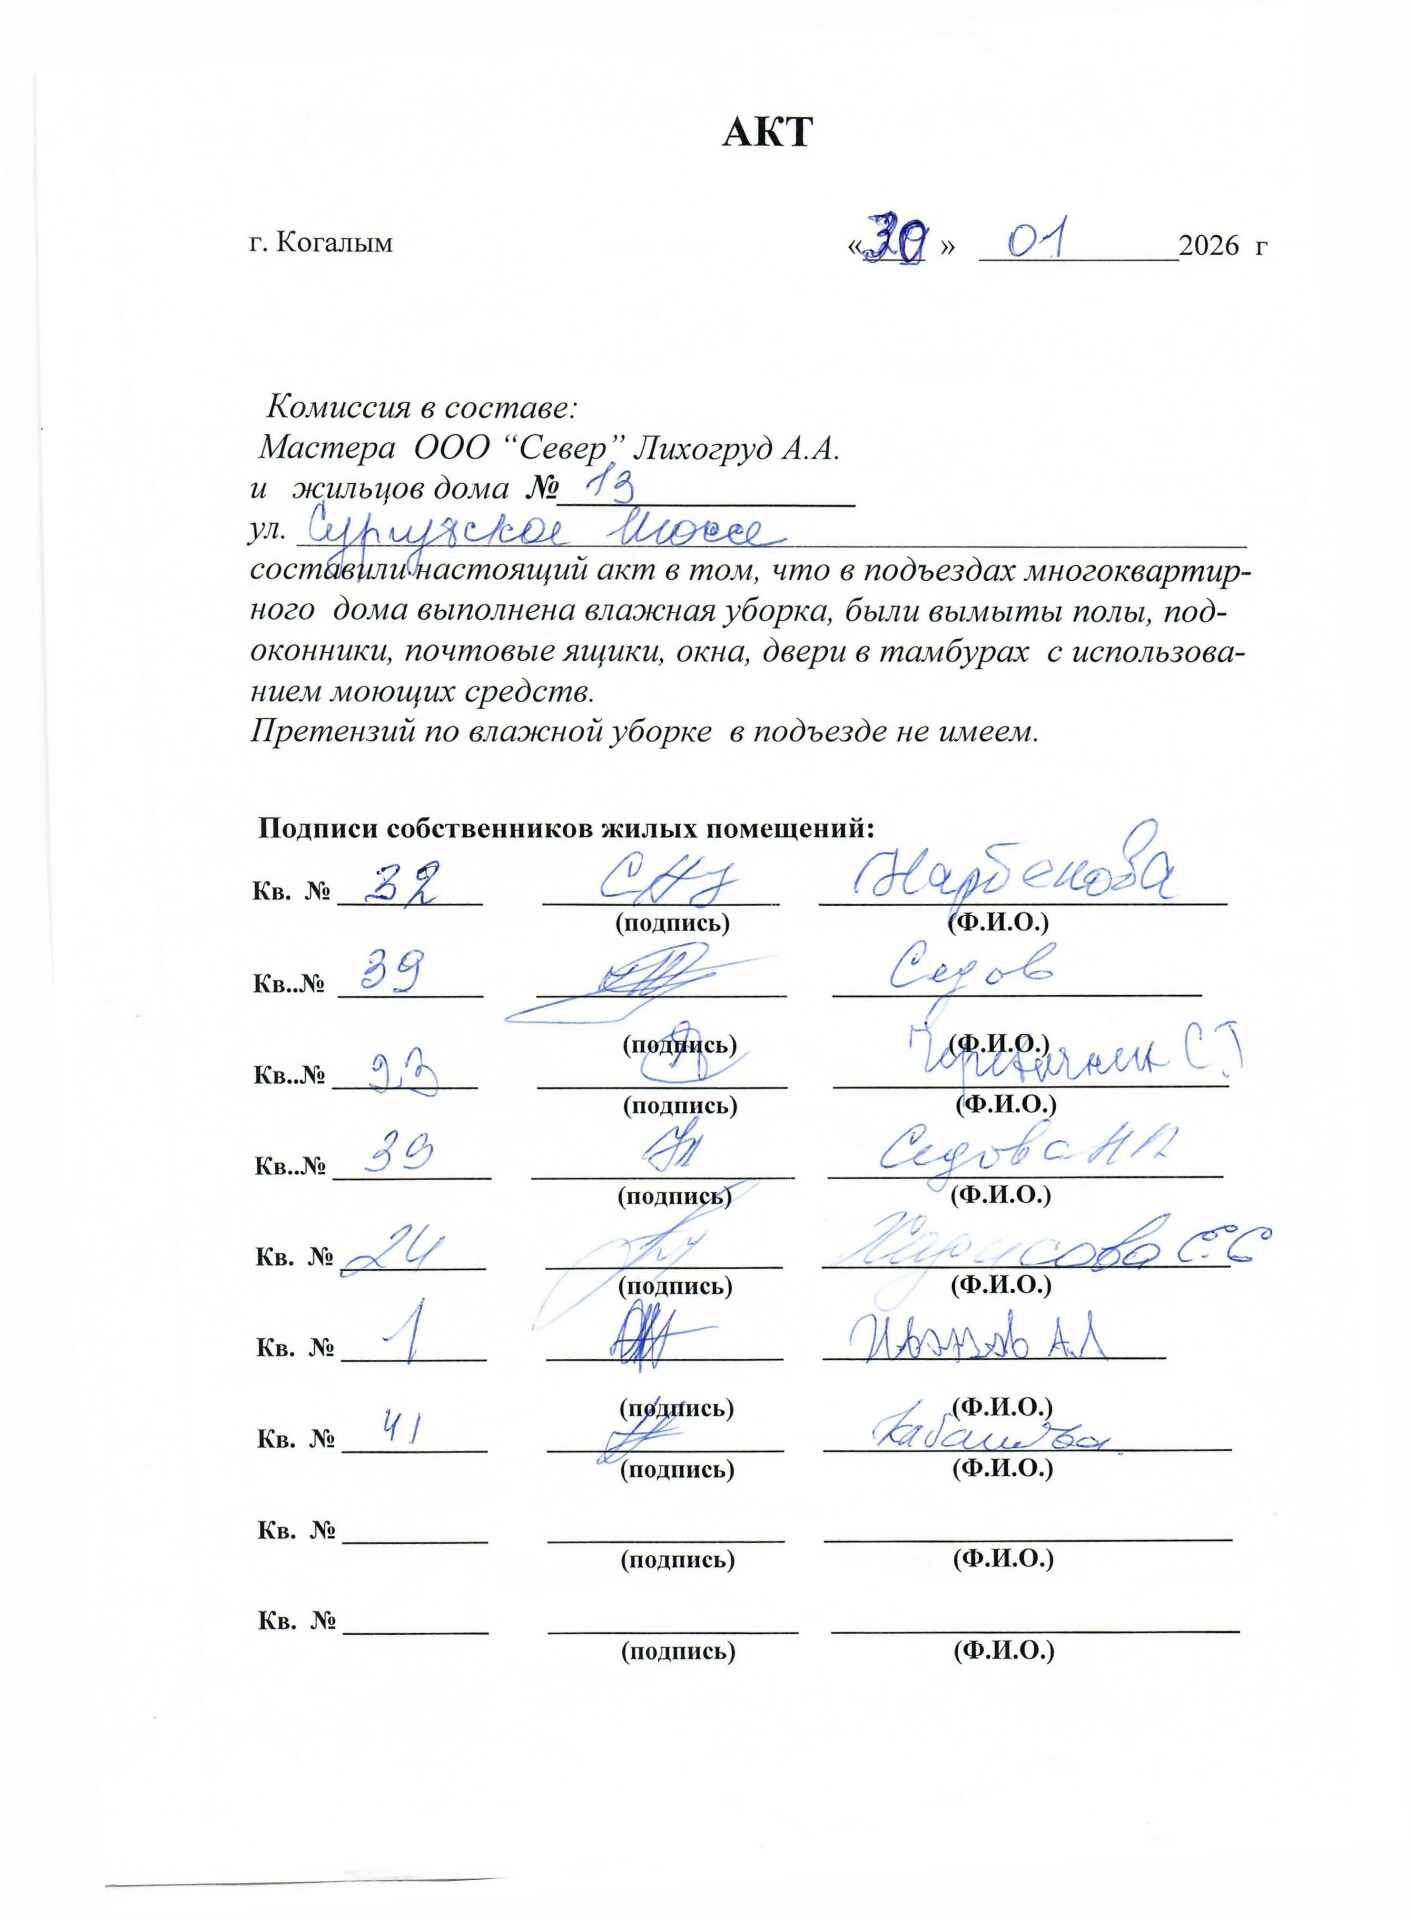 АКТ
г. Когалым «30» 01 2026 г
Комиссия в составе:
Мастера ООО “Север” Лихогруд А.А.
и жильцов дома № 13
ул. Сургутское Шоссе
составили настоящий акт в том, что в подъездах многоквартир-
ного дома выполнена влажная уборка, были вымыты полы, под-
оконники, почтовые ящики, окна, двери в тамбурах с использова-
нием моющих средств.
Претензий по влажной уборке в подъезде не имеем.
Подписи собственников жилых помещений:
Кв. № 32 Нарбекова
(подпись) (Ф.И.О.)
Кв..№ 39 Седов
(подпись) (Ф.И.О.)
Кв..№ 23 С.Г
(подпись) (Ф.И.О.)
Кв..№ 39 Седова Н П
(подпись) (Ф.И.О.)
Кв. № 24
(подпись) (Ф.И.О.)
Кв. № 1 Иванов А.Л
(подпись) (Ф.И.О.)
Кв. № 41
(подпись) (Ф.И.О.)
Кв. №
(подпись) (Ф.И.О.)
Кв. №
(подпись) (Ф.И.О.)